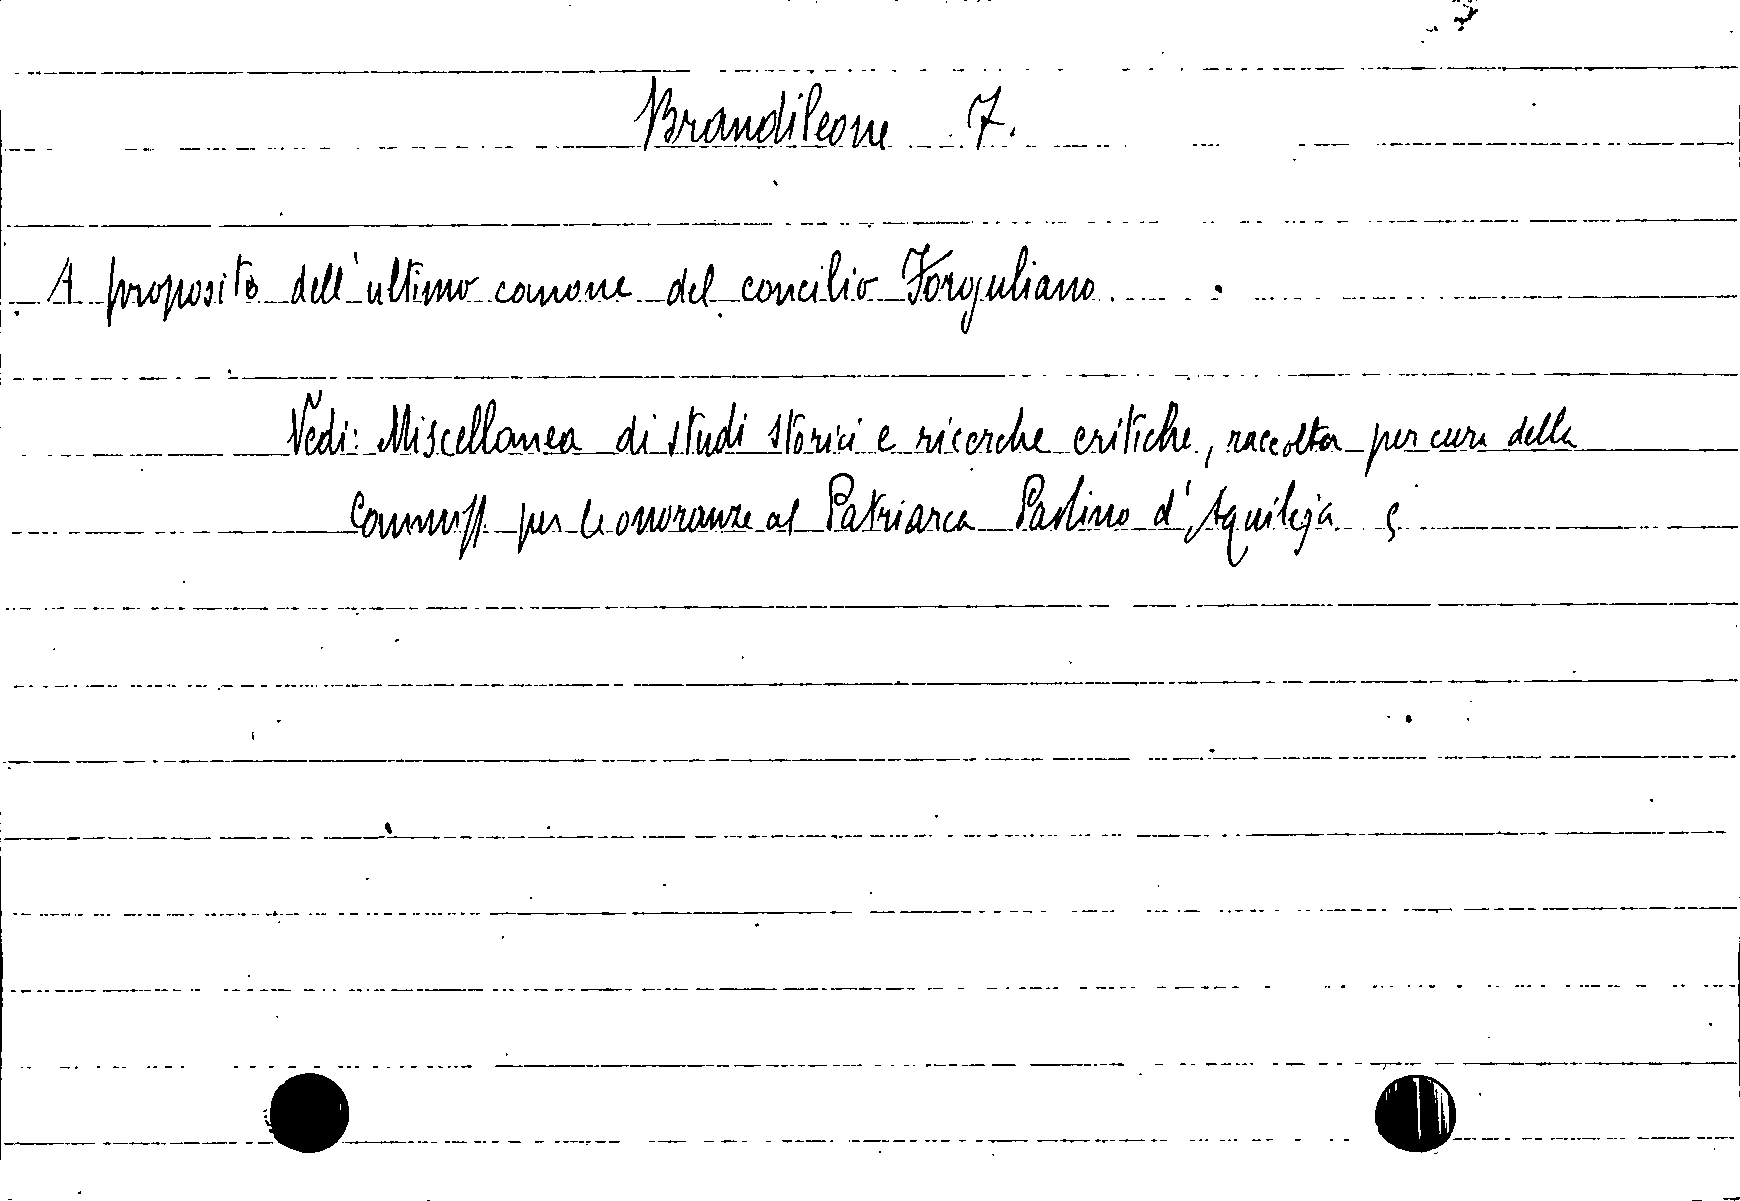 Brandileone F.
A proposito dell'ultimo canone del concilio Forojuliano.
Vedi: Miscellanea di studi storici e ricerche critiche, raccolta per cura della
Commiss. per le onoranze al Patriarca Paolino d'Aquileja